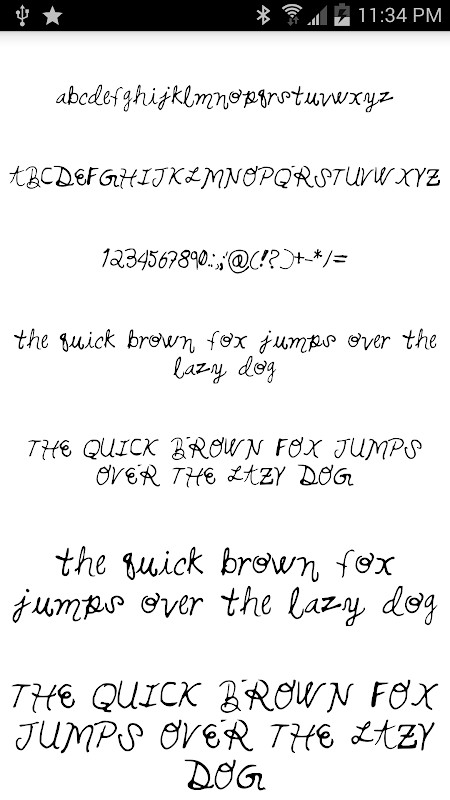 11:34 PM
abcdefghijklmnopqrstuvwxyz
ABCDEFGHIJKLMNOPQRSTUVWXYZ
1234567890.:,;'@(!?)+-*/=
the quick brown fox jumps over the
lazy dog
THE QUICK BROWN FOX JUMPS
OVER THE LAZY DOG
the quick brown fox
jumps over the lazy dog
THE QUICK BROWN FOX
JUMPS OVER THE LAZY
DOG